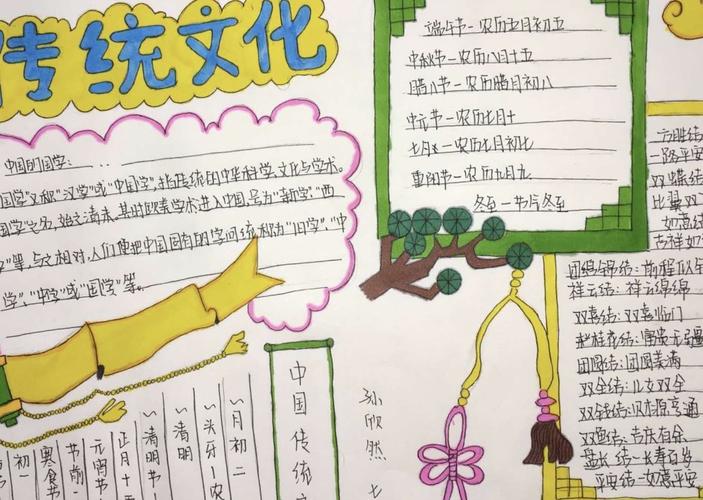 传统文化
中国的国学：
国学"又称"汉学"或"中国学",指传统的中华科学、文化与学术。
国学"之名,始之清末。其时欧美学术进入中国,号为"新学"、"西
学"等,与之相对,人们便把中国固有的学问统称为"旧学"、"中
学"、"中学"或"国学"等。
端午节—农历五月初五
中秋节—农历八月十五
腊八节—农历腊月初八
中元节—农历七月十
七月七—农历七月初七
重阳节—农历九月九
冬至—节气冬至
方胜结：
一路平安
双蝶结：
比翼双
如意结：
吉祥如
团锦结：前程似金
祥云结：祥云绵绵
双喜结：双喜临门
团圆结：团圆美满
双全结：儿女双全
双钱结：财源亨通
双鱼结：吉庆有余
盘长结—长寿百岁
平安结—如意平安
中国传统
孙欣然
七
二月初二
头牙—农
清明
清明节—
正月十五
元宵节
节前一
寒食节
初一